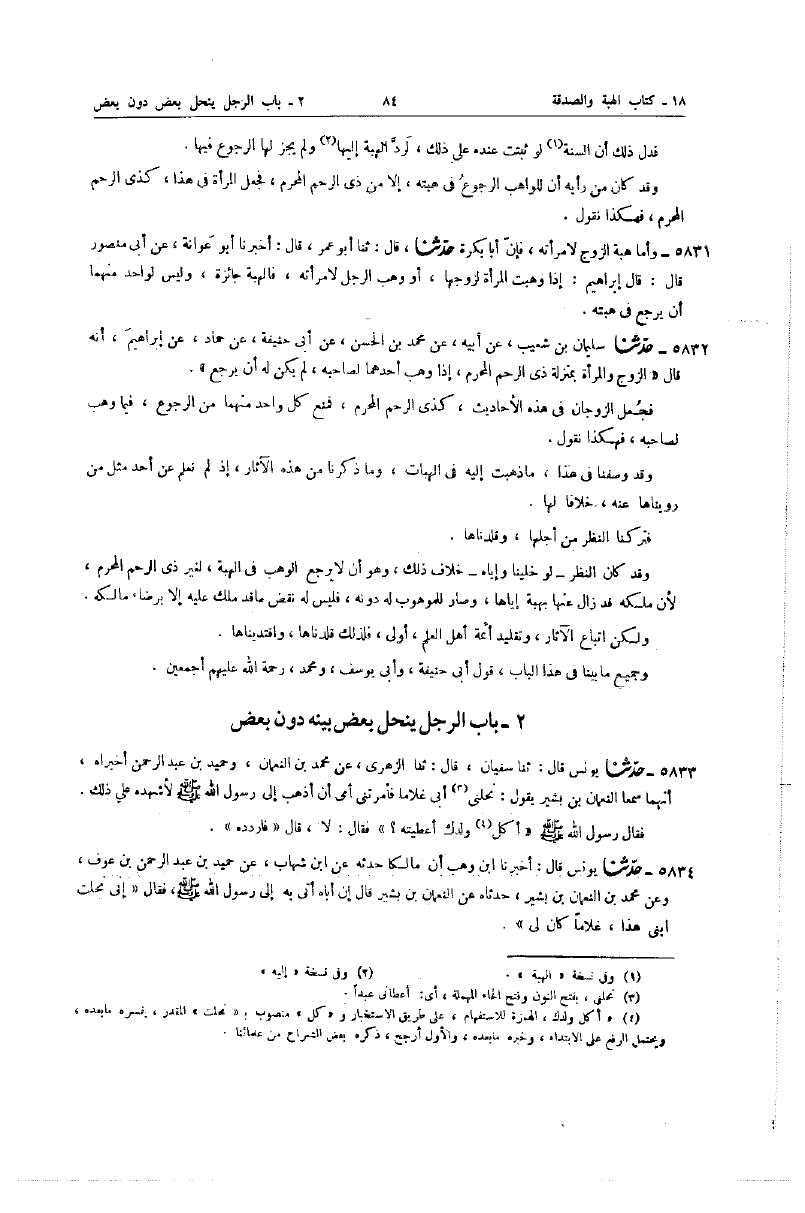 ١٨ - كتاب الهبة والصدقة ٨٤ ٢ - باب الرجل ينحل بعض دون بعض
فدل ذلك أن السنة(١) لو ثبتت عنده على ذلك ، لردَّ الهبة إليها(٢) ولم يجز لها الرجوع فيها .
وقد كان من رأيه أن للواهب الرجوعُ فى هبته ، إلا من ذى الرحم المحرم ، فجعل المرأة فى هذا ، كذى الرحم
المحرم ، فهكذا نقول .
٥٨٣١ - وأما هبة الزوج لامرأته ، فإنّ أبا بكرة حدّثنا ، قال : ثنا أبو عمر ، قال : أخبرنا أبو عَوانة ، عن أبى منصور
قال : قال إبراهيم : إذا وهبت المرأة لزوجها ، أو وهب الرجل لامرأته ، فالهبة جائزة ، وليس لواحد منهما
أن يرجع فى هبته .
٥٨٣٢ - حدّثنا سليمان بن شعيب ، عن أبيه ، عن محمد بن الحسن ، عن أبى حنيفة ، عن حماد ، عن إبراهيمَ ، أنه
قال « الزوج والمرأة بمنزلة ذى الرحم المحرم ، إذا وهب أحدهما لصاحبه ، لم يكن له أن يرجع » .
فجُعل الزوجان فى هذه الأحاديث ، كذى الرحم المحرم ، فمنع كل واحد منهما من الرجوع ، فيما وهب
لصاحبه ، فهكذا نقول .
وقد وصفنا فى هذا ، ماذهبت إليه فى الهبات ، وما ذكرنا من هذه الآثار ، إذ لم نعلم عن أحد مثل من
رويناها عنه ، خلافا لها .
فتركنا النظر من أجلها ، وقلدناها .
وقد كان النظر - لو خلينا وإياه - خلاف ذلك ، وهو أن لا يرجع الوهب فى الهبة ، لغير ذى الرحم المحرم ،
لأن ملكه قد زال عنها بهبة إياها ، وصار للموهوب له دونه ، فليس له نقض ماقد ملك عليه إلا برضاء مالكه .
ولكن اتباع الآثار ، وتقليد أئمة أهل العلم ، أولى ، فلذلك قلدناها ، واقتديناها .
وجميع مابينا فى هذا الباب ، قول أبى حنيفة ، وأبى يوسف ، ومحمد ، رحمة الله عليهم أجمعين .
٢ - باب الرجل ينحل بعض بينه دون بعض
٥٨٣٣ - حدّثنا يونس قال : ثنا سفيان ، قال : ثنا الزهرى ، عن محمد بن النعمان ، وحميد بن عبد الرحمن أخبراه ،
أنهما سمعا النعمان بن بشير يقول : نحلنى(٣) أبى غلاما فأمرتنى أمى أن أذهب إلى رسول الله ﷺ لأشهده على ذلك .
فقال رسول الله ﷺ « أكل(٤) ولدك أعطيته ؟ » فقال : لا ، قال « فاردده » .
٥٨٣٤ - حدّثنا يونس قال : أخبرنا ابن وهب أن مالكا حدثه عن ابن شهاب ، عن حميد بن عبد الرحمن بن عوف ،
وعن محمد بن النعمان بن بشير ، حدثاه عن النعمان بن بشير قال إن أباه أتى به إلى رسول الله ﷺ ، فقال « إنى نحلت
ابنى هذا ، غلاماً كان لى » .
(١) وفى نسخة « الهبة » . (٢) وفى نسخة « إليه »
(٣) نحلنى ، بفتح النون وفتح الحاء المهملة ، أى: أعطانى عبداً .
(٤) « أكل ولدك ، الهمزة للاستفهام ، على طريق الاستخبار و « كل » منصوب بـ « نحلت » المقدر ، يفسره مابعده ،
ويحتمل الرفع على الابتداء ، وخبره مابعده ، والأول أرجح ، ذكره بعض الشراح من علمائنا .